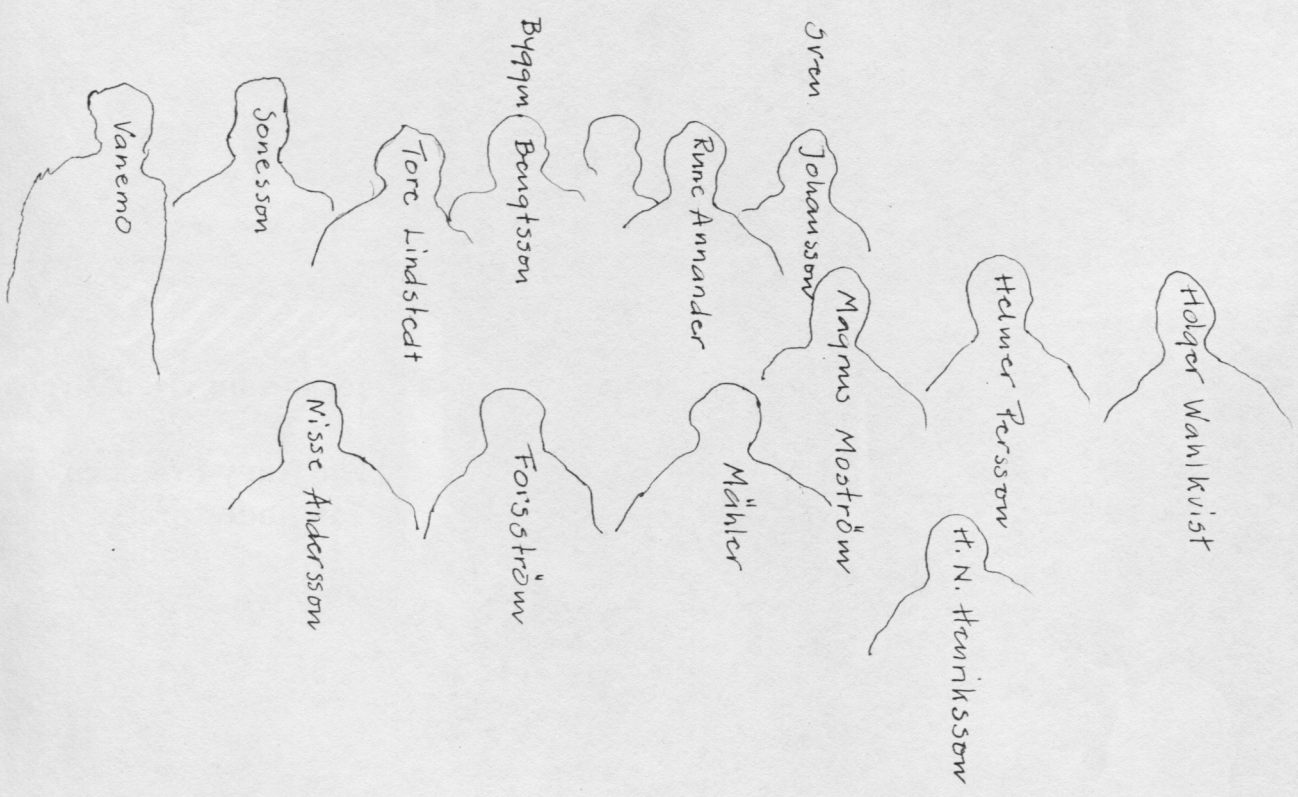 Vanemo
Sonesson
Tore Lindstedt
Byggm. Bengtsson
Rune Annander
Sven Johansson
Magnus Moström
Helmer Persson
Holger Wahlkvist
Nisse Andersson
Forsström
Mähler
H. N. Henriksson